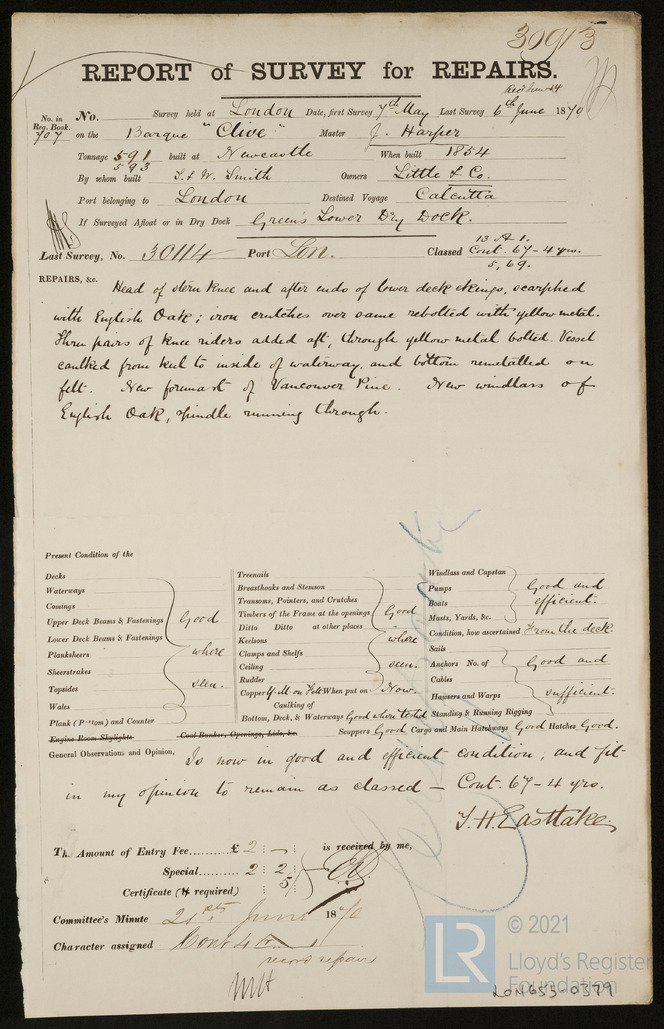 30913
REPORT of SURVEY for REPAIRS.
No. in Reg. Book. No. Survey held at London Date, first Survey 7th May Last Survey 6th June 1870
707 on the Barque "Clive" Master J. Harper
Tonnage 591 built at Newcastle When built 1854
593
By whom built T. & W. Smith Owners Little & Co.
Port belonging to London Destined Voyage Calcutta
If Surveyed Afloat or in Dry Dock Green's Lower Dry Dock.
13 A 1.
Last Survey, No. 30114 Port Lon. Classed Cont. 67 - 4 yrs.
5, 69.
REPAIRS, &c. Head of stern knee and after ends of lower deck ekeings, scarphed
with English Oak; iron crutches over same rebolted with yellow metal.
Three pairs of knee riders added aft, through yellow metal bolted. Vessel
caulked from keel to inside of waterway, and bottom remetalled on
felt. New foremast of Vancouver Pine. New windlass of
English Oak, spindle running through.
Present Condition of the
Decks
Waterways
Comings
Upper Deck Beams & Fastenings
Lower Deck Beams & Fastenings
Planksheers
Sheerstrakes
Topsides
Wales
Plank (Bottom) and Counter
Good
where
seen.
Engine Room Skylights
Coal Bunker, Openings, Lids, &c.
Treenails
Breasthooks and Stemson
Transoms, Pointers, and Crutches
Timbers of the Frame at the openings
Ditto Ditto at other places
Keelsons
Clamps and Shelfs
Ceiling
Rudder
Good
where
seen.
Copper Y.M. on Felt When put on Now.
Caulking of
Bottom, Deck, & Waterways Good where tested
Windlass and Capstan
Pumps
Boats
Masts, Yards, &c.
Good and
efficient.
Condition, how ascertained From the deck.
Sails
Anchors No. of
Cables
Hawsers and Warps
Standing & Running Rigging
Good and
sufficient.
Scuppers Good Cargo and Main Hatchways Good Hatches Good.
General Observations and Opinion, Is now in good and efficient condition, and fit
in my opinion to remain as classed — Cont. 67 - 4 yrs.
T. H. Eastlake
The Amount of Entry Fee......... £ 2 : — : is received by me,
Special......... 2 : 2 :
Certificate (If required) : 5 :
Committee's Minute 21st June 1870
Character assigned Cont 4
record repairs
© 2021
LR
Lloyd's Register
Foundation
LON653-0379